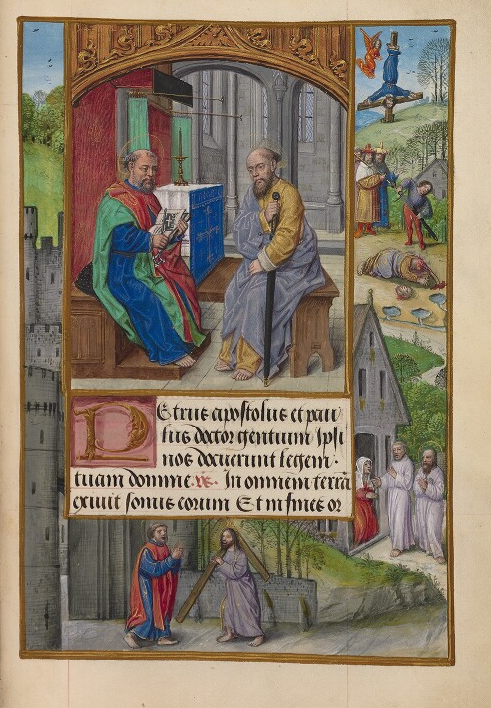 Petrus apostolus et pau
lus doctor gentium ipsi
nos docuerunt legem
tuam domine. In omnem terrā
exiuit sonus eorum Et in fines or